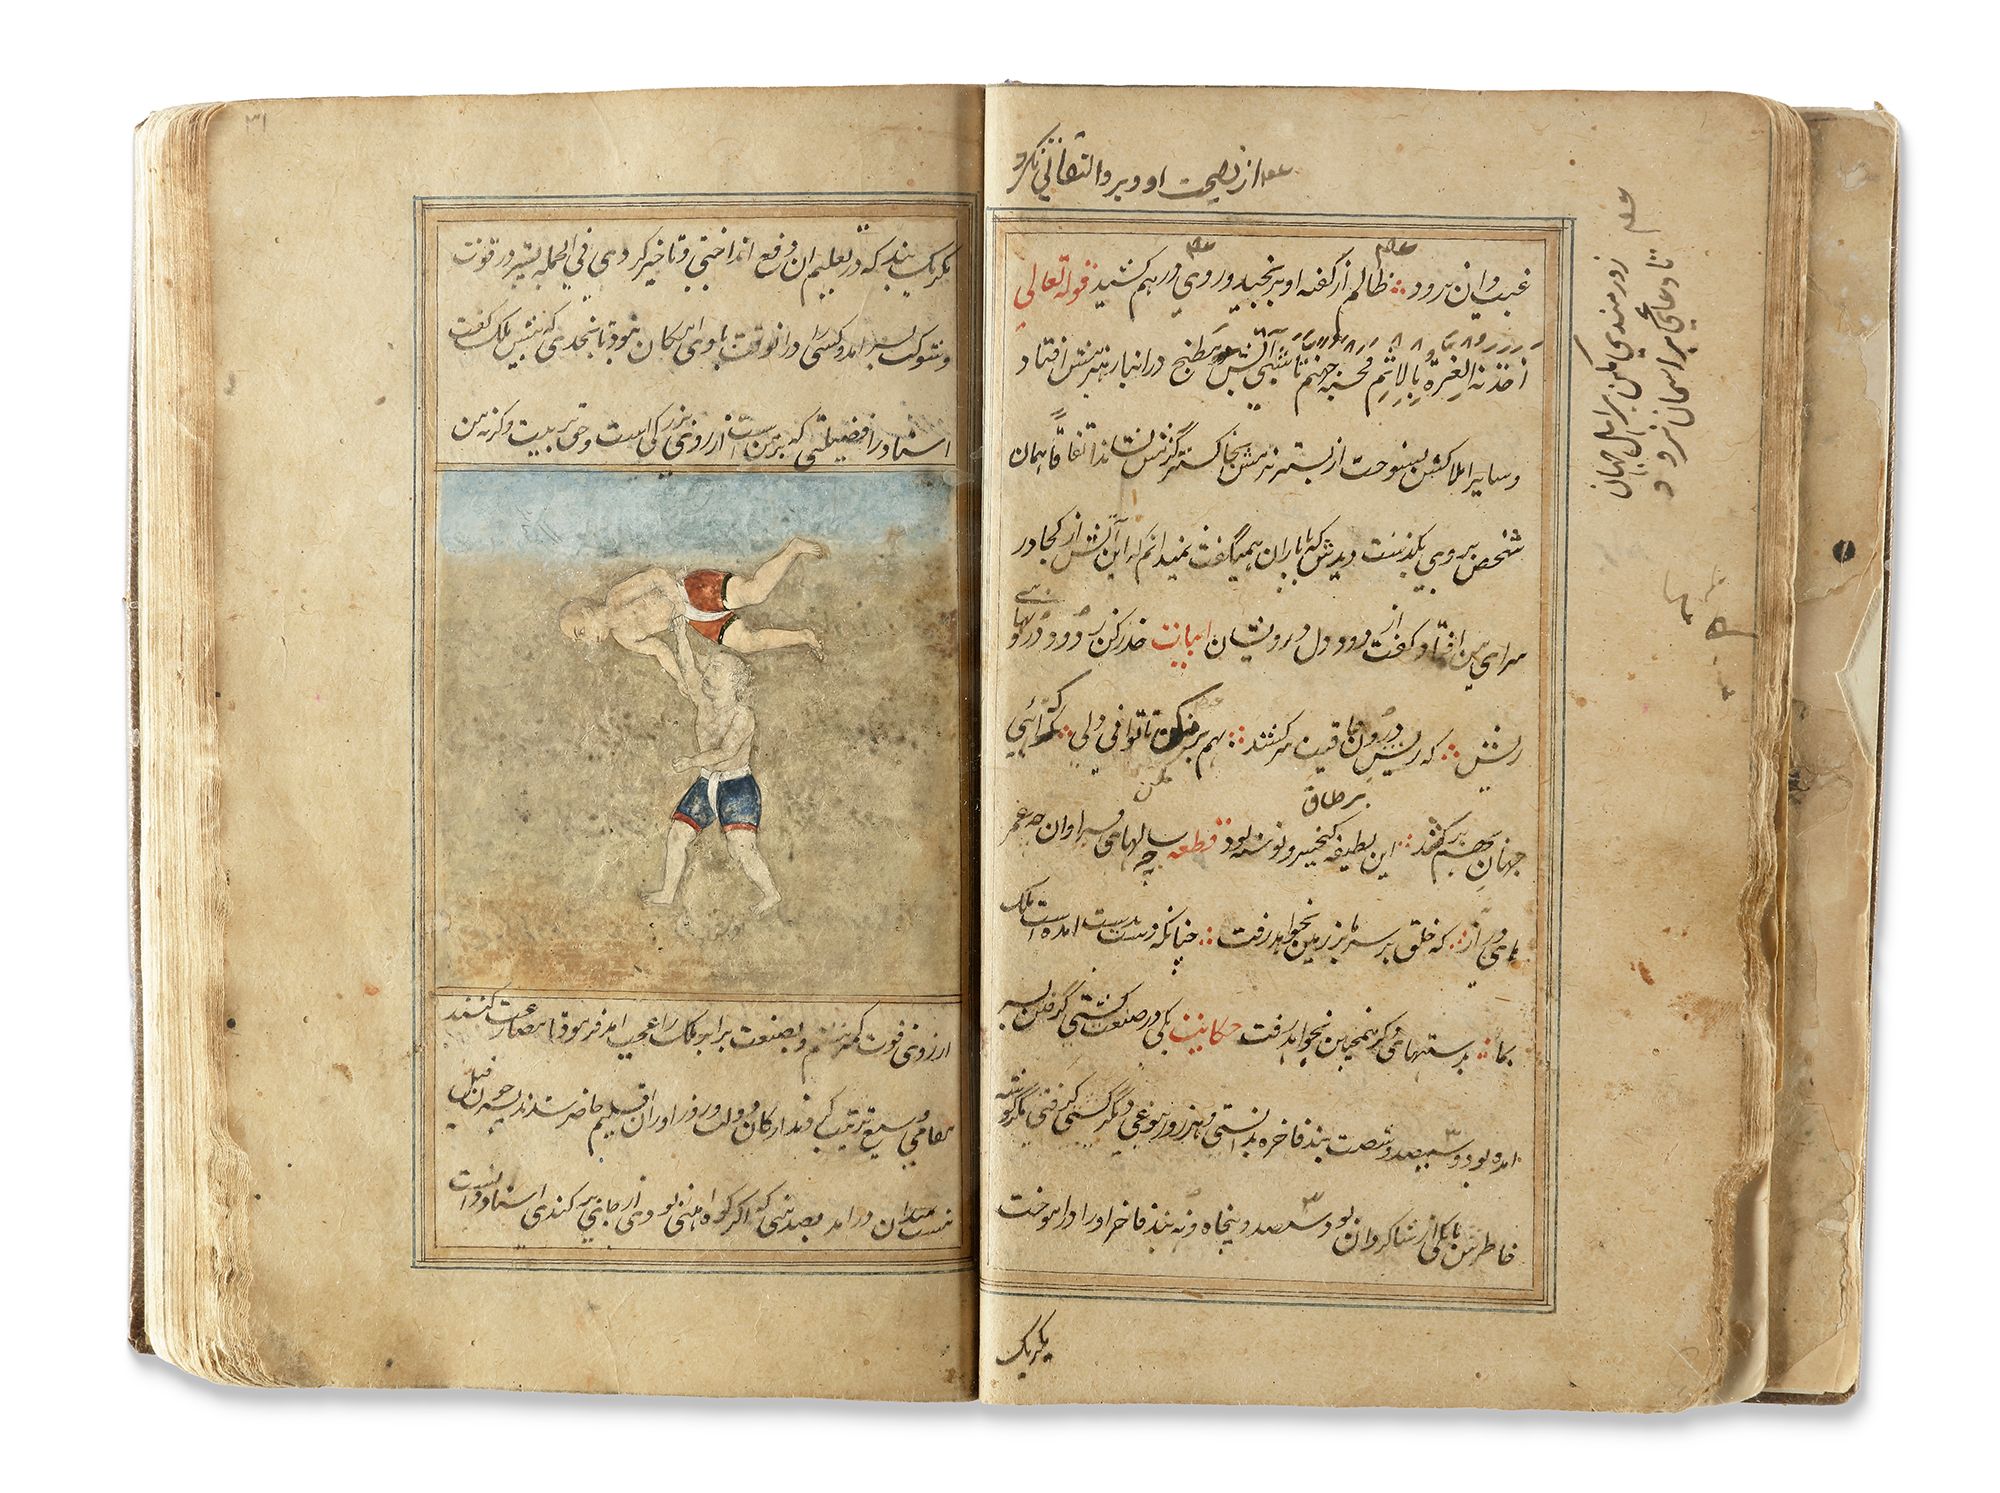 از نصیحت او و برو التفاتی نکرد
زورمندی مکن بر اهل جهان
تا دعایی بر اسمان نرود
غیب دان نرود ظالم از گفته او برنجید و روی درهم کشید قوله تعالی
اخذته العزة بالاثم فحسبه جهنم تا شبی آتش مطبخ در انبار هیزمش افتاد
و سایر املاکش بسوخت از بستر نرمش بخاکستر گرمش نشاند اتفاقا همان
شخص بر وی بگذشت دیدش که با یاران همیگفت نمیدانم که این آتش از کجا در
سرای من افتاد گفت از دود دل درویشان ابیات حذر کن ز دود درونهای
ریش که ریش درون عاقبت سر کند بهم بر مکن تا توانی دلی که آهی
جهانی بهم بر کند این لطیفه بر طاق کیخسرو نوشته بود قطعه چه سالهای فراوان چه عمر
های دراز که خلق بر سر ما بر زمین بخواهد رفت چنانکه دست بدست امده است ملک
بما بدستهای دگر همچنین بخواهد رفت حکایت یکی در صنعت کشتی گرفتن بسر
امده بود و سیصد و شصت بند فاخره بدانستی و هر روز بنوعی دیگر کشتی گرفتی مگر گوشه
خاطرش با یکی از شاگردان بود سیصد و پنجاه و نه بند فاخر او را در اموخت
مگر یک
۳۱
مگر یک بند که در تعلیم ان دفع انداختی و تاخیر کردی فی الجمله پسر در قوت
و صنعت بسر امد و کسی را در انوقت با وی امکان نبود تا بحدی که پیش ملک گفت
استاد را فضیلتی که بر من است از روی بزرگی است و حق تربیت وگرنه من
از روی قوت کمتر نیستم و بصنعت برابر ملک را عجب امد فرمود تا مصارعت کنند
مقامی وسیع ترتیب کردند ارکان دولت و زور اوران اقلیم حاضر شدند پسر چون فیل
مست بمیدان در امد بصدمتی که اگر کوه اهنی بودی از جای بر کندی استاد دانست